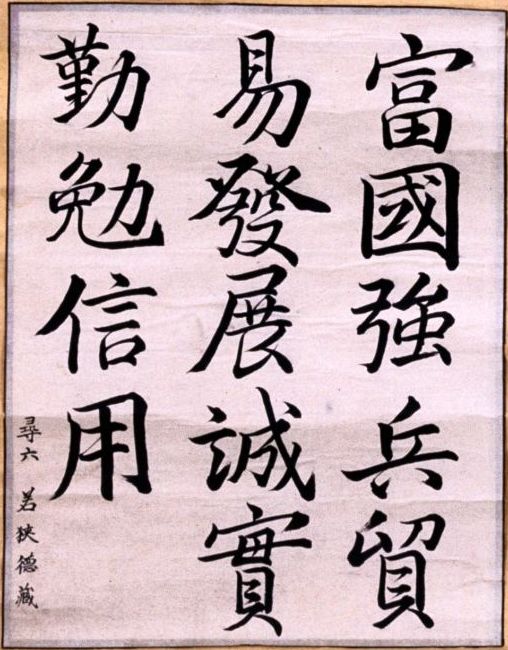 富國強兵貿
易發展誠實
勤勉信用
尋六 若狹德藏